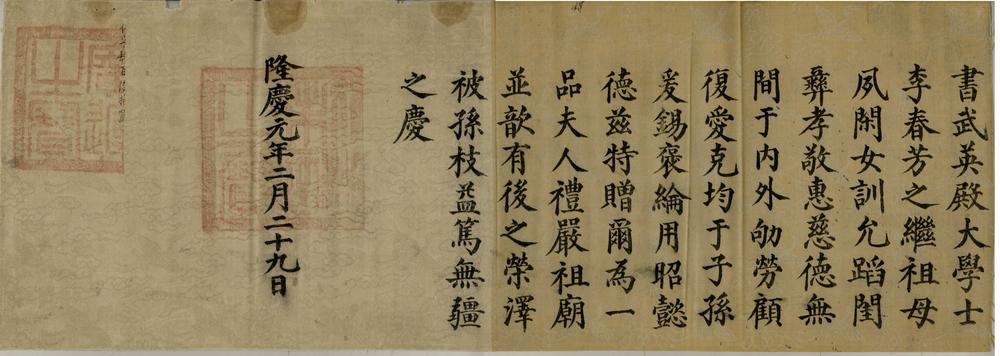 書武英殿大學士
李春芳之繼祖母
夙閑女訓允蹈閨
彝孝敬惠慈德無
間于内外劬勞顧
復愛克均于子孫
爰錫褒綸用昭懿
德兹特贈爾為一
品夫人禮嚴祖廟
並歆有後之榮澤
被孫枝益篤無疆
之慶
隆慶元年二月二十九日